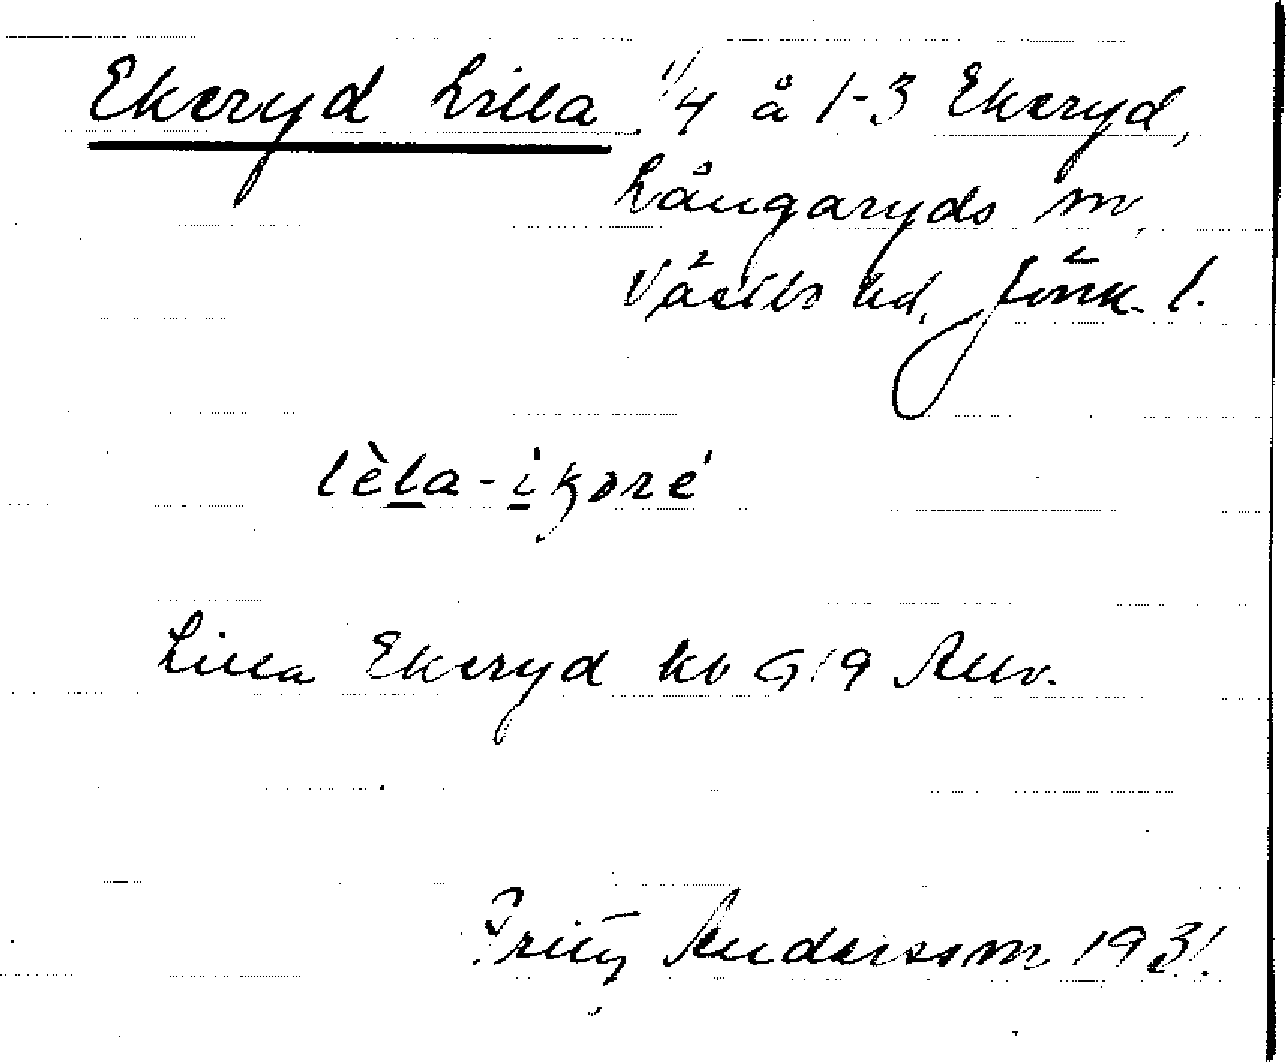 Ekeryd Lilla 1/4 å 1-3 Ekeryd,
Långaryds sn,
Västbo hd, Jönk. l.
lèla-ikəré
Lilla Ekeryd kb G19 Allv.
Fritz Andersson 1931.